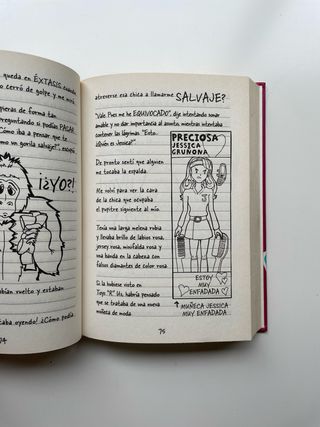 queda en ÉXTASIS cuando
cerró de golpe y me miró
pieras de forma tan
preguntando si podías PAGAR
¿Cómo iba a pensar que te
un gorila salvaje?", escupió
¡¿YO?!
bían vuelto y estaban
taba oyendo! ¿Cómo podía
74
atreverse esa chica a llamarme SALVAJE?
"Vale. Pues me he EQUIVOCADO", dije intentando sonar
amable y no dar importancia al asunto, mientras intentaba
contener las lágrimas. "Esto...
¿Quién es Jessica?".
De pronto sentí que alguien
me tocaba la espalda.
Me volví para ver la cara
de la chica que ocupaba
el pupitre siguiente al mío.
Tenía una larga melena rubia
y llevaba brillo de labios rosa,
jersey rosa, minifalda rosa y
una banda en la cabeza con
falsos diamantes de color rosa.
Si la hubiese visto en
Toys "R" Us, habría pensado
que se trataba de una nueva
muñeca de moda.
PRECIOSA
JESSICA
GRUÑONA
ESTOY
MUY
ENFADADA
MUÑECA JESSICA
MUY ENFADADA
75